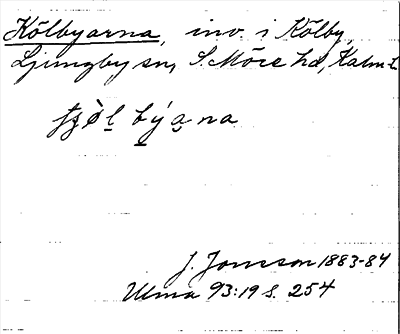 Kölbyarna, inv. i Kölby,
Ljungby sn, S. Möre hd, Kalm. L.
J. Jonsson 1883-84
Ulma 93:19 s. 254